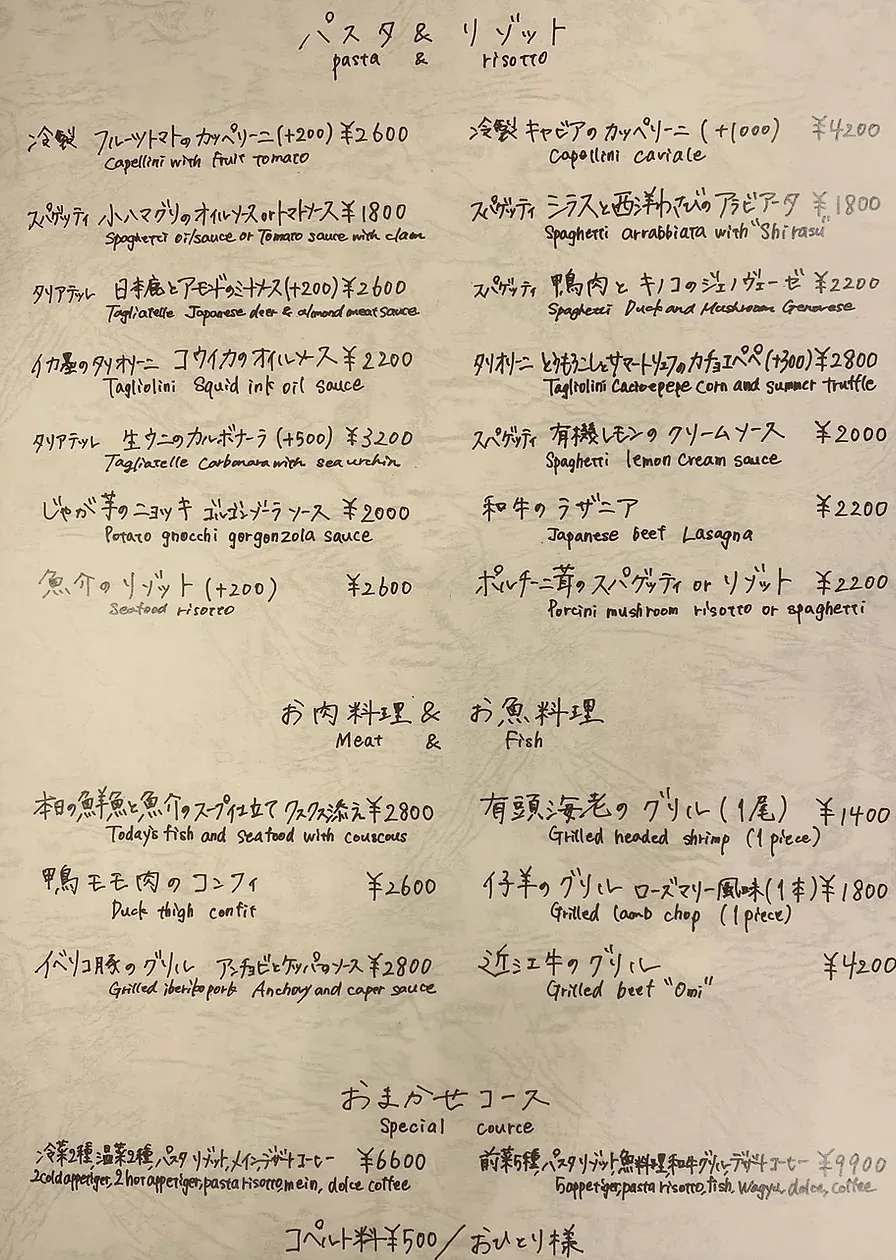 パスタ & リゾット
pasta & risotto
冷製 フルーツトマトのカッペリーニ(+200) ¥2600
Capellini with fruit tomato
冷製 キャビアのカッペリーニ (+1000) ¥4200
Capellini caviale
スパゲッティ 小ハマグリのオイルソースorトマトソース ¥1800
Spaghetti oil sauce or Tomato sauce with clam
スパゲッティ シラスと西洋わさびのアラビアータ ¥1800
Spaghetti arrabbiata with "Shirasu"
タリアテッレ 日本鹿とアーモンドのミートソース(+200) ¥2600
Tagliatelle Japanese deer & almond meat sauce
スパゲッティ 鴨肉とキノコのジェノヴェーゼ ¥2200
Spaghetti Duck and Mushroom Genovese
イカ墨のタリオリーニ コウイカのオイルソース ¥2200
Tagliolini Squid ink oil sauce
タリオリーニ とうもろこしとサマートリュフのカチョエペペ(+300) ¥2800
Tagliolini Cacioepepe corn and summer truffle
タリアテッレ 生ウニのカルボナーラ (+500) ¥3200
Tagliatelle Carbonara with sea urchin
スパゲッティ 有機レモンのクリームソース ¥2000
Spaghetti lemon cream sauce
じゃが芋のニョッキ ゴルゴンゾーラソース ¥2000
Potato gnocchi gorgonzola sauce
和牛のラザニア ¥2200
Japanese beef Lasagna
魚介のリゾット (+200) ¥2600
Seafood risotto
ポルチーニ茸のスパゲッティ or リゾット ¥2200
Porcini mushroom risotto or spaghetti
お肉料理 & お魚料理
Meat & Fish
本日の鮮魚と魚介のスープ仕立て クスクス添え ¥2800
Today's fish and seafood with couscous
有頭海老のグリル (1尾) ¥1400
Grilled headed shrimp (1 piece)
鴨モモ肉のコンフィ ¥2600
Duck thigh confit
仔羊のグリル ローズマリー風味(1本) ¥1800
Grilled lamb chop (1 piece)
イベリコ豚のグリル アンチョビとケッパーのソース ¥2800
Grilled iberiko pork Anchovy and caper sauce
近江牛のグリル ¥4200
Grilled beef "Omi"
おまかせコース
Special cource
冷菜2種,温菜2種,パスタ リゾット,メイン,デザート コーヒー ¥6600
2 cold appetizer, 2 hot appetizer, pasta risotto, mein, dolce coffee
前菜5種,パスタ リゾット,魚料理,和牛グリル,デザート コーヒー ¥9900
5 appetizer, pasta risotto, fish, wagyu, dolce, coffee
コペルト料 ¥500/おひとり様